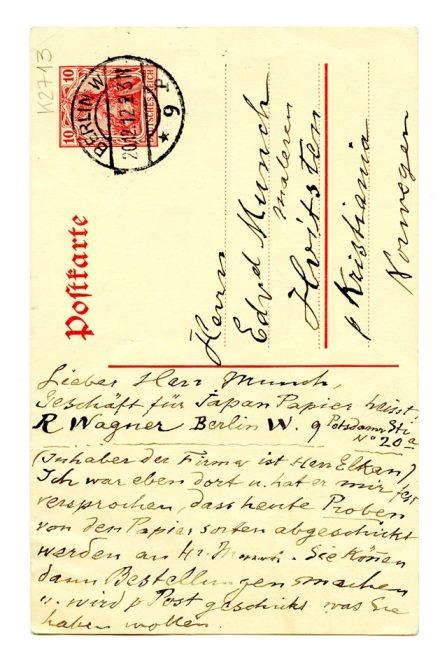 K2713
10 10
DEUTSCHES REICH
BERLIN W
20.12.12.2-3N
* 9 d
Postkarte
Herrn
Edvd Munch
maleren
Hvitsten
p Kristiania
Norwegen
Lieber Herr Munch,
Geschäft für Japan Papier heisst,
R Wagner Berlin W. 9 Potsdamer Str
No 20a
(Inhaber der Firma ist Herr Elkan)
Ich war eben dort u. hat er mir fest
versprochen, dass heute Proben
von den Papiersorten abgeschickt
werden an Hr. Sie können
dann Bestellungen machen
u. wird p Post geschickt was Sie
haben wollen.